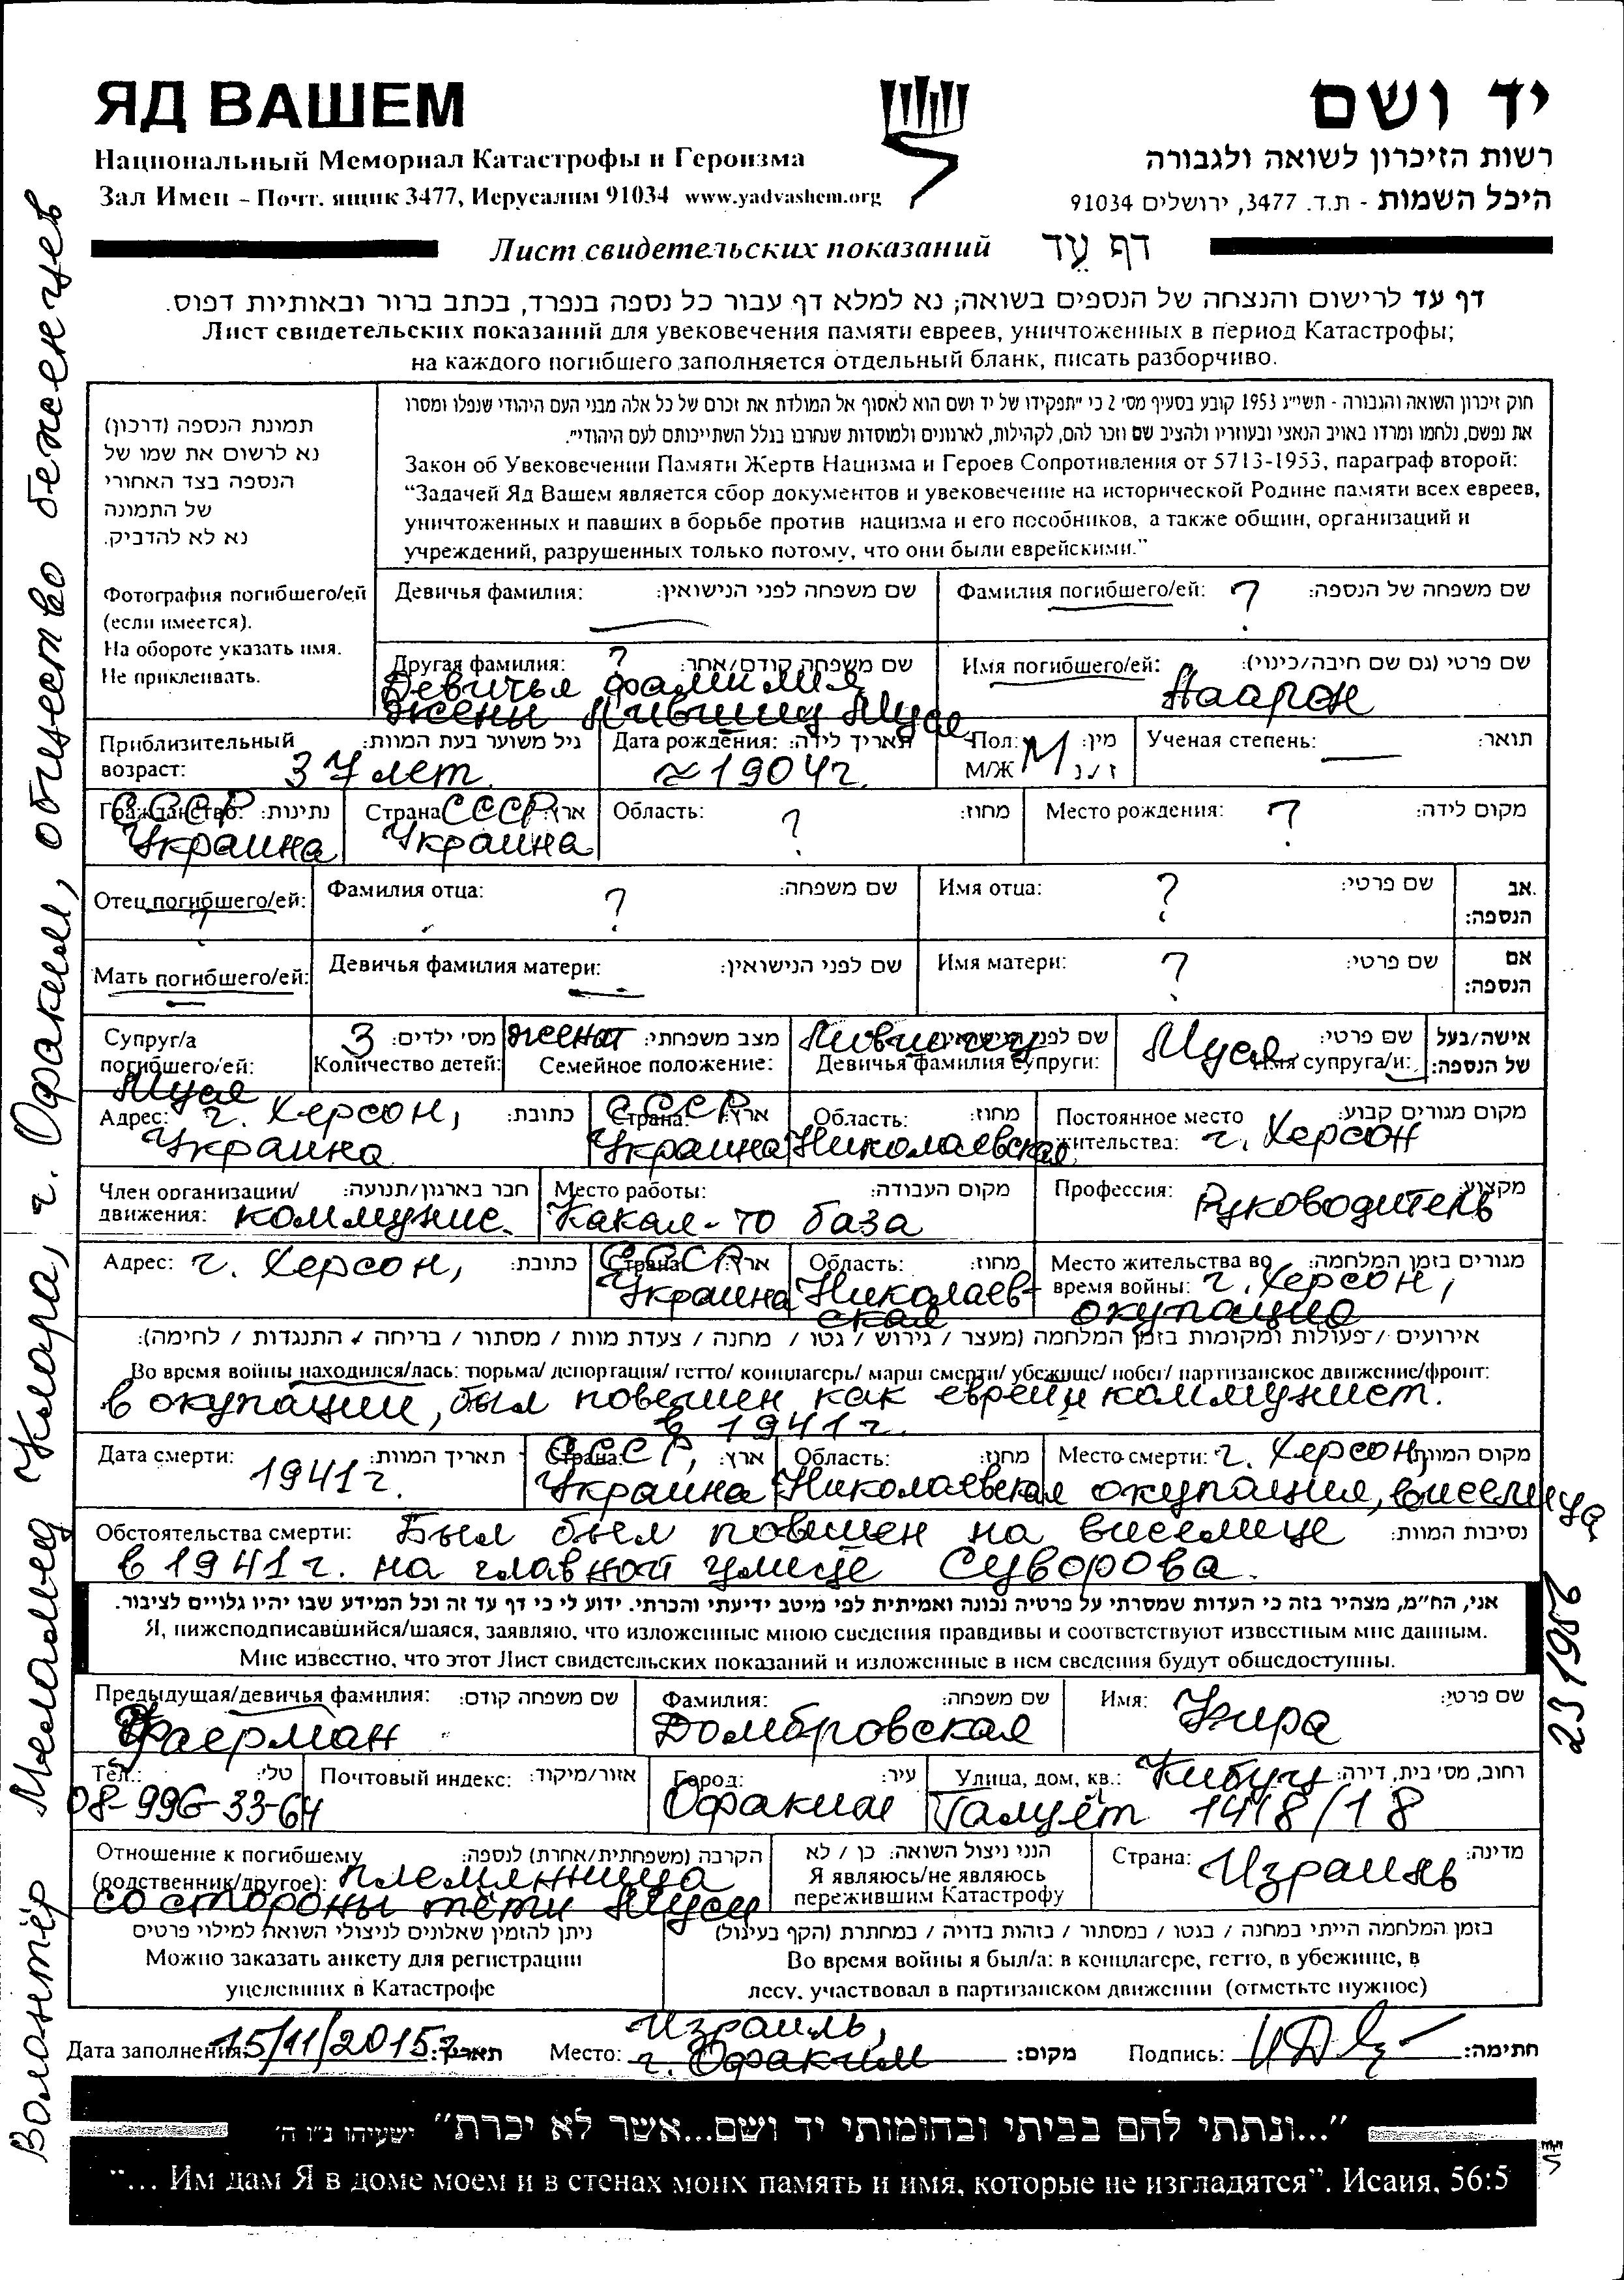 ЯД ВАШЕМ
יד ושם
Национальный Мемориал Катастрофы и Героизма
רשות הזיכרון לשואה ולגבורה
Зал Имен – Почт. ящик 3477, Иерусалим 91034 www.yadvashem.org
היכל השמות - ת.ד. 3477, ירושלים 91034
Лист свидетельских показаний דף עֵד
דף עד לרישום והנצחה של הנספים בשואה; נא למלא דף עבור כל נספה בנפרד, בכתב ברור ובאותיות דפוס.
Лист свидетельских показаний для увековечения памяти евреев, уничтоженных в период Катастрофы;
на каждого погибшего заполняется отдельный бланк, писать разборчиво.
תמונת הנספה (דרכון)
נא לרשום את שמו של
הנספה בצד האחורי
של התמונה
נא לא להדביק.
Фотография погибшего/ей
(если имеется).
На обороте указать имя.
Не приклеивать.
חוק זיכרון השואה והגבורה - תשי"ג 1953 קובע בסעיף מס' 2 כי "תפקידו של יד ושם הוא לאסוף אל המולדת את זכרם של כל אלה מבני העם היהודי שנפלו ומסרו
את נפשם, נלחמו ומרדו באויב הנאצי ובעוזריו ולהציב שם וזכר להם, לקהילות, לארגונים ולמוסדות שנחרבו בגלל השתייכותם לעם היהודי".
Закон об Увековечении Памяти Жертв Нацизма и Героев Сопротивления от 5713-1953, параграф второй:
“Задачей Яд Вашем является сбор документов и увековечение на исторической Родине памяти всех евреев,
уничтоженных и павших в борьбе против нацизма и его пособников, а также общин, организаций и
учреждений, разрушенных только потому, что они были еврейскими.”
Девичья фамилия: שם משפחה לפני הנישואין: —
Фамилия погибшего/ей: ? שם משפחה של הנספה:
Другая фамилия: ? שם משפחה קודם/אחר:
Девичья фамилия
жены Лившиц Муся
Имя погибшего/ей: שם פרטי (גם שם חיבה/כינוי):
Наарон
Приблизительный גיל משוער בעת המוות:
возраст: 37 лет.
Дата рождения: תאריך לידה:
≈ 1904 г.
Пол: М מין:
М/Ж ז / נ
Ученая степень: — תואר:
Гражданство: СССР נתינות:
Украина
Страна СССР ארץ:
Украина
Область: ? מחוז:
Место рождения: ? מקום לידה:
Отец погибшего/ей: ?
Фамилия отца: ? שם משפחה:
Имя отца: ? שם פרטי:
אב
הנספה:
Мать погибшего/ей: —
Девичья фамилия матери: — שם לפני הנישואין:
Имя матери: ? שם פרטי:
אם
הנספה:
Супруг/а
погибшего/ей:
Муся
3 מס' ילדים:
Количество детей:
женат מצב משפחתי:
Семейное положение:
Лившиц שם לפני הנישואין:
Девичья фамилия супруги:
Муся שם פרטי:
Имя супруга/и:
אישה/בעל
של הנספה:
Адрес: г. Херсон, כתובת:
Украина
Страна: СССР ארץ:
Украина
Область: מחוז:
Николаевская
Постоянное место מקום מגורים קבוע:
жительства: г. Херсон
Член организации/ חבר בארגון/תנועה:
движения: коммунис.
Место работы: מקום העבודה:
Какая-то база
Профессия: מקצוע:
Руководитель
Адрес: г. Херсон, כתובת:
Страна: СССР ארץ:
Украина
Область: מחוז:
Николаев-
ская
Место жительства во מגורים בזמן המלחמה:
время войны: г. Херсон,
окупацио
אירועים / פעולות ומקומות בזמן המלחמה (מעצר / גירוש / גטו / מחנה / צעדת מוות / מסתור / בריחה / התנגדות / לחימה):
Во время войны находился/лась: тюрьма/ депортация/ гетто/ концлагерь/ марш смерти/ убежище/ побег/ партизанское движение/фронт:
в окупации, был повешен, как еврей и коммунист.
в 1941 г.
Дата смерти: תאריך המוות:
1941 г.
Страна: СССР, ארץ:
Украина
Область: מחוז:
Николаевская
Место смерти: г. Херсон, מקום המוות:
окупация, виселица
Обстоятельства смерти: Был был повишен на виселице נסיבות המוות:
в 1941 г. на главной улице Суворова.
אני, הח"מ, מצהיר בזה כי העדות שמסרתי על פרטיה נכונה ואמיתית לפי מיטב ידיעתי והכרתי. ידוע לי כי דף עד זה וכל המידע שבו יהיו גלויים לציבור.
Я, нижеподписавшийся/шаяся, заявляю, что изложенные мною сведения правдивы и соответствуют известным мне данным.
Мне известно, что этот Лист свидетельских показаний и изложенные в нем сведения будут общедоступны.
Предыдущая/девичья фамилия: שם משפחה קודם:
Фаерман
Фамилия: שם משפחה:
Домбровская
Имя: שם פרטי:
Кира
Тел.: טל':
08-996-33-64
Почтовый индекс: אזור/מיקוד:
Город: עיר:
Офаким
Улица, дом, кв.: Кибуц רחוב, מס' בית, דירה:
Галует 1418/18
Отношение к погибшему הקרבה (משפחתית/אחרת) לנספה:
(родственник/другое): племянница
со стороны тёти Муси
הנני ניצול השואה: כן / לא
Я являюсь/не являюсь
пережившим Катастрофу
Страна: Израиль מדינה:
ניתן להזמין שאלונים לניצולי השואה למילוי פרטים
Можно заказать анкету для регистрации
уцелевших в Катастрофе
בזמן המלחמה הייתי במחנה / בגטו / במסתור / בזהות בדויה / במחתרת (הקף בעיגול)
Во время войны я был/а: в концлагере, гетто, в убежище, в
лесу, участвовал в партизанском движении (отметьте нужное)
Дата заполнения: 15/11/2015 г. תאריך:
Место: Израиль, מקום:
г. Офаким
Подпись: חתימה:
"...ונתתי להם בביתי ובחומותי יד ושם...אשר לא יכרת" ישעיהו נ"ו ה'
“... Им дам Я в доме моем и в стенах моих память и имя, которые не изгладятся”. Исаия, 56:5
Волонтёр Меламед Клара, г. Офаким, общество беженцев